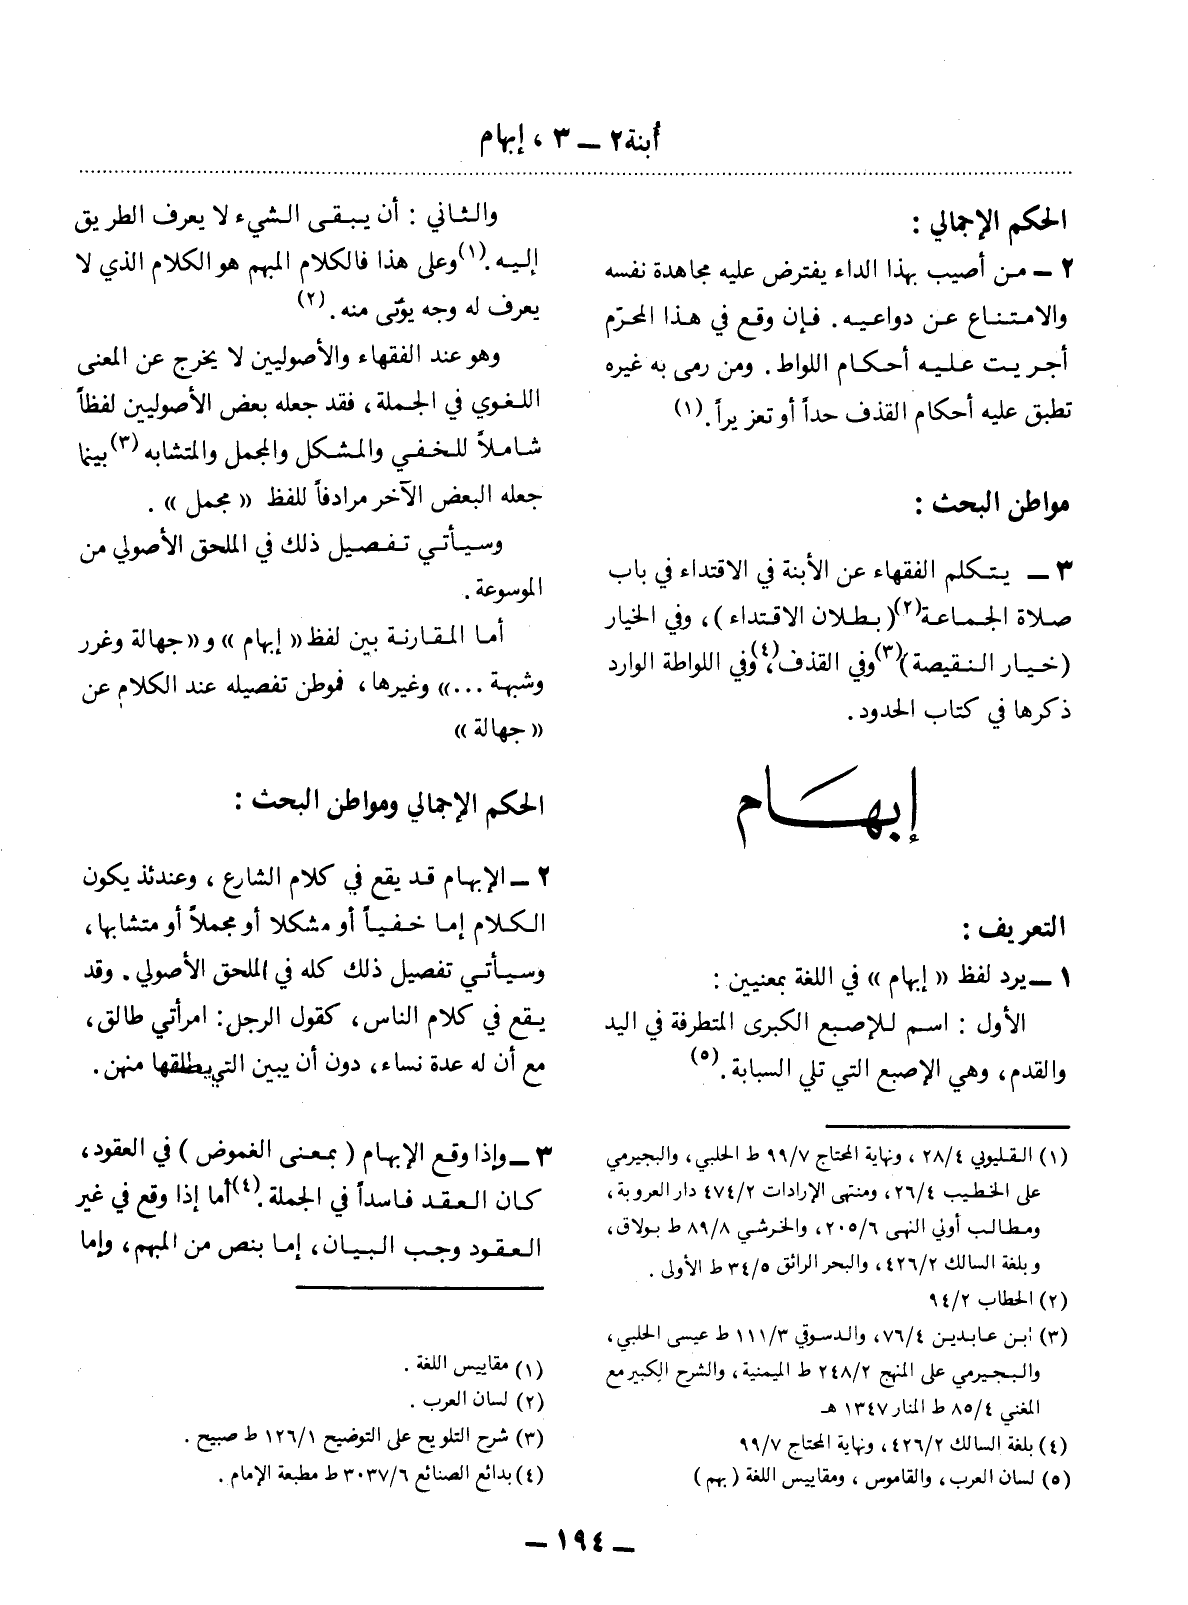 أبنة ٢ ــ ٣ ، إبهام
الحكم الإجمالي :
٢ ــ من أصيب بهذا الداء يفترض عليه مجاهدة نفسه
والامتناع عن دواعيه . فإن وقع في هذا المحرّم
أجريت عليه أحكام اللواط . ومن رمى به غيره
تطبق عليه أحكام القذف حداً أو تعزيراً . (١)
مواطن البحث :
٣ ــ يتكلم الفقهاء عن الأبنة في الاقتداء في باب
صلاة الجماعة (٢) ( بطلان الاقتداء ) ، وفي الخيار
( خيار النقيصة ) (٣) وفي القذف ، (٤) وفي اللواطة الوارد
ذكرها في كتاب الحدود .
إبهام
التعريف :
١ ــ يرد لفظ « إبهام » في اللغة بمعنيين :
الأول : اسم للإصبع الكبرى المتطرفة في اليد
والقدم ، وهي الإصبع التي تلي السبابة . (٥)
(١) القليوبي ٢٨/٤ ، ونهاية المحتاج ٩٩/٧ ط الحلبي ، والبجيرمي
على الخطيب ٢٦/٤ ، ومنتهى الإرادات ٤٧٤/٢ دار العروبة ،
ومطالب أولي النهى ٢٠٥/٦ ، والخرشي ٨٩/٨ ط بولاق ،
وبلغة السالك ٤٢٦/٢ ، والبحر الرائق ٣٤/٥ ط الأولى .
(٢) الحطاب ٩٤/٢
(٣) ابن عابدين ٧٦/٤ ، والدسوقي ١١١/٣ ط عيسى الحلبي ،
والبجيرمي على المنهج ٢٤٨/٢ ط الميمنية ، والشرح الكبير مع
المغني ٨٥/٤ ط المنار ١٣٤٧ هـ
(٤) بلغة السالك ٤٢٦/٢ ، ونهاية المحتاج ٩٩/٧
(٥) لسان العرب ، والقاموس ، ومقاييس اللغة ( بهم )
والثاني : أن يبقى الشيء لا يعرف الطريق
إليه . (١) وعلى هذا فالكلام المبهم هو الكلام الذي لا
يعرف له وجه يؤتى منه . (٢)
وهو عند الفقهاء والأصوليين لا يخرج عن المعنى
اللغوي في الجملة ، فقد جعله بعض الأصوليين لفظاً
شاملاً للخفي والمشكل والمجمل والمتشابه (٣) بينما
جعله البعض الآخر مرادفاً للفظ « مجمل » .
وسيأتي تفصيل ذلك في الملحق الأصولي من
الموسوعة .
أما المقارنة بين لفظ « إبهام » و « جهالة وغرر
وشبهة ... » وغيرها ، فموطن تفصيله عند الكلام عن
« جهالة »
الحكم الإجمالي ومواطن البحث :
٢ ــ الإبهام قد يقع في كلام الشارع ، وعندئذ يكون
الكلام إما خفياً أو مشكلا أو مجملاً أو متشابها ،
وسيأتي تفصيل ذلك كله في الملحق الأصولي . وقد
يقع في كلام الناس ، كقول الرجل : امرأتي طالق ،
مع أن له عدة نساء ، دون أن يبين التي يطلقها منهن .
٣ ــ وإذا وقع الإبهام ( بمعنى الغموض ) في العقود ،
كان العقد فاسداً في الجملة . (٤) أما إذا وقع في غير
العقود وجب البيان ، إما بنص من المبهم ، وإما
(١) مقاييس اللغة .
(٢) لسان العرب .
(٣) شرح التلويح على التوضيح ١٢٦/١ ط صبيح .
(٤) بدائع الصنائع ٣٠٣٧/٦ ط مطبعة الإمام .
ــ ١٩٤ ــ